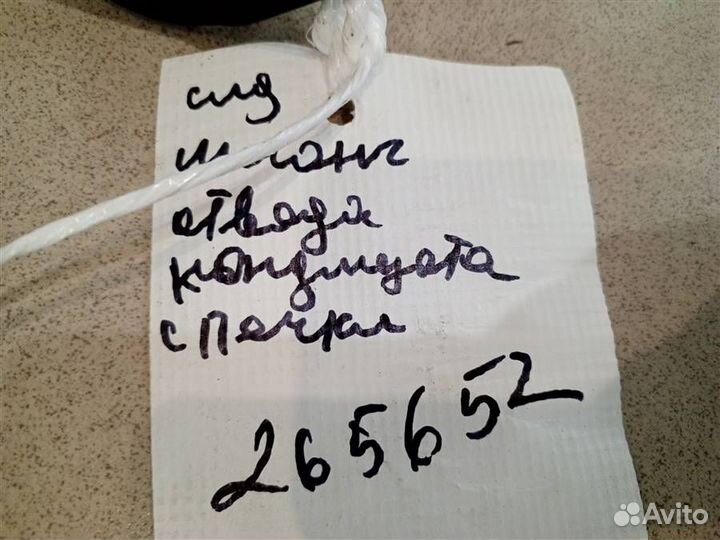 сид
шланг
отвода
кондицота
с печки
265652
Avito